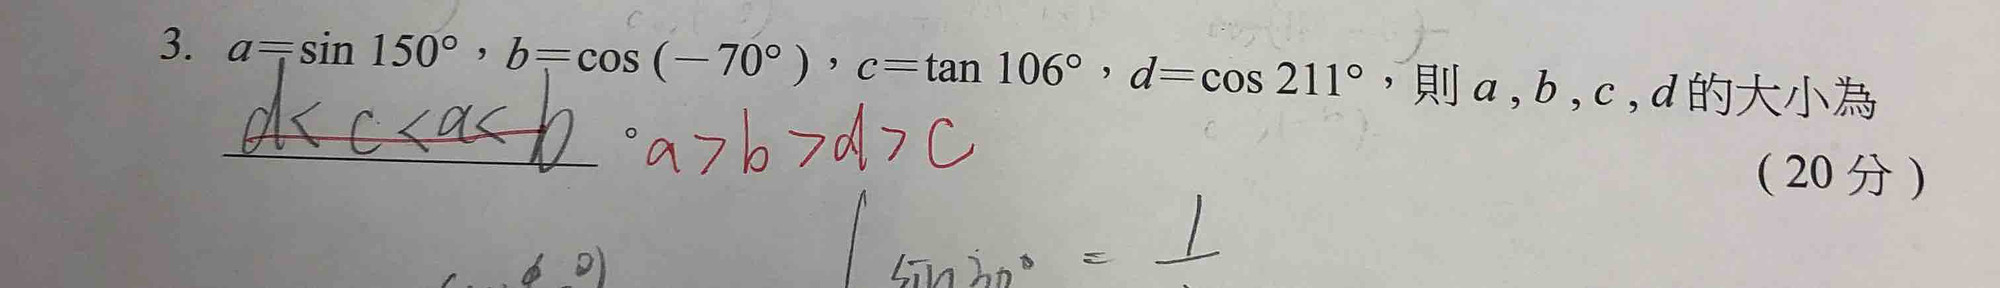 3. a=sin 150°，b=cos (－70°)，c=tan 106°，d=cos 211°，則 a , b , c , d 的大小為
d< c <a< b 。a>b>d>c
(20 分)
sin30° = 1